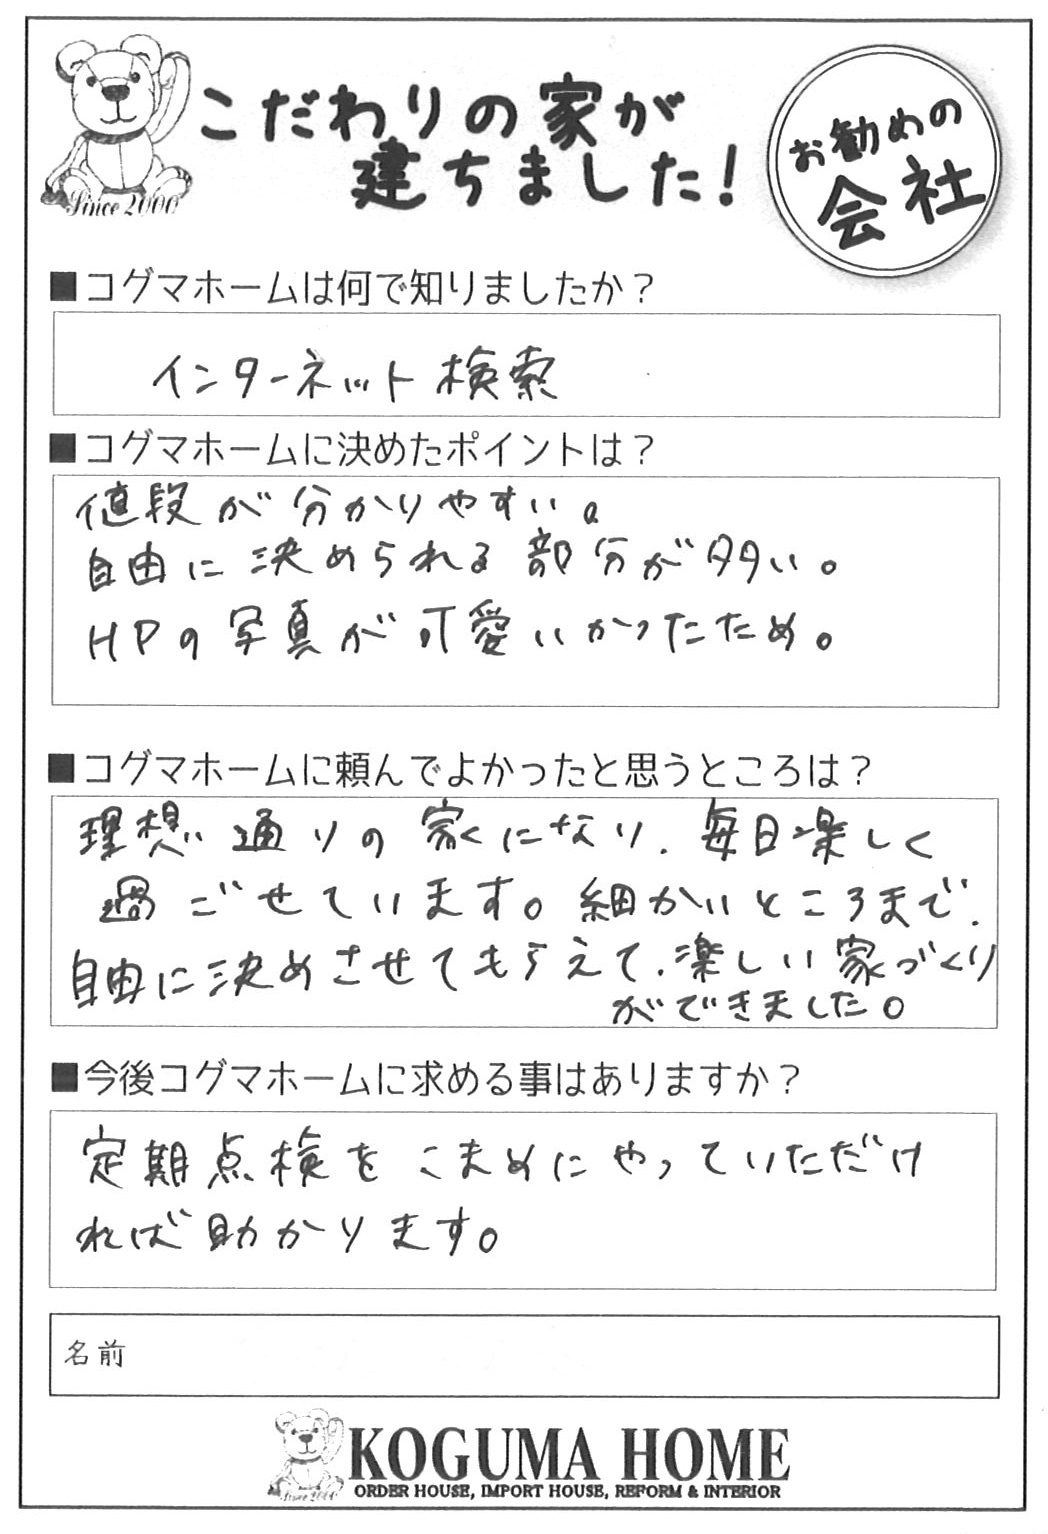 Since 2000
こだわりの家が
建ちました!
お勧めの
会社
■コグマホームは何で知りましたか?
インターネット検索
■コグマホームに決めたポイントは?
値段が分かりやすい。
自由に決められる部分が多い。
HPの写真が可愛いかったため。
■コグマホームに頼んでよかったと思うところは?
理想通りの家になり、毎日楽しく
過ごせています。細かいところまで、
自由に決めさせてもらえて、楽しい家づくり
ができました。
■今後コグマホームに求める事はありますか?
定期点検をこまめにやっていただけ
れば助かります。
名前
Since 2000
KOGUMA HOME
ORDER HOUSE, IMPORT HOUSE, REFORM & INTERIOR